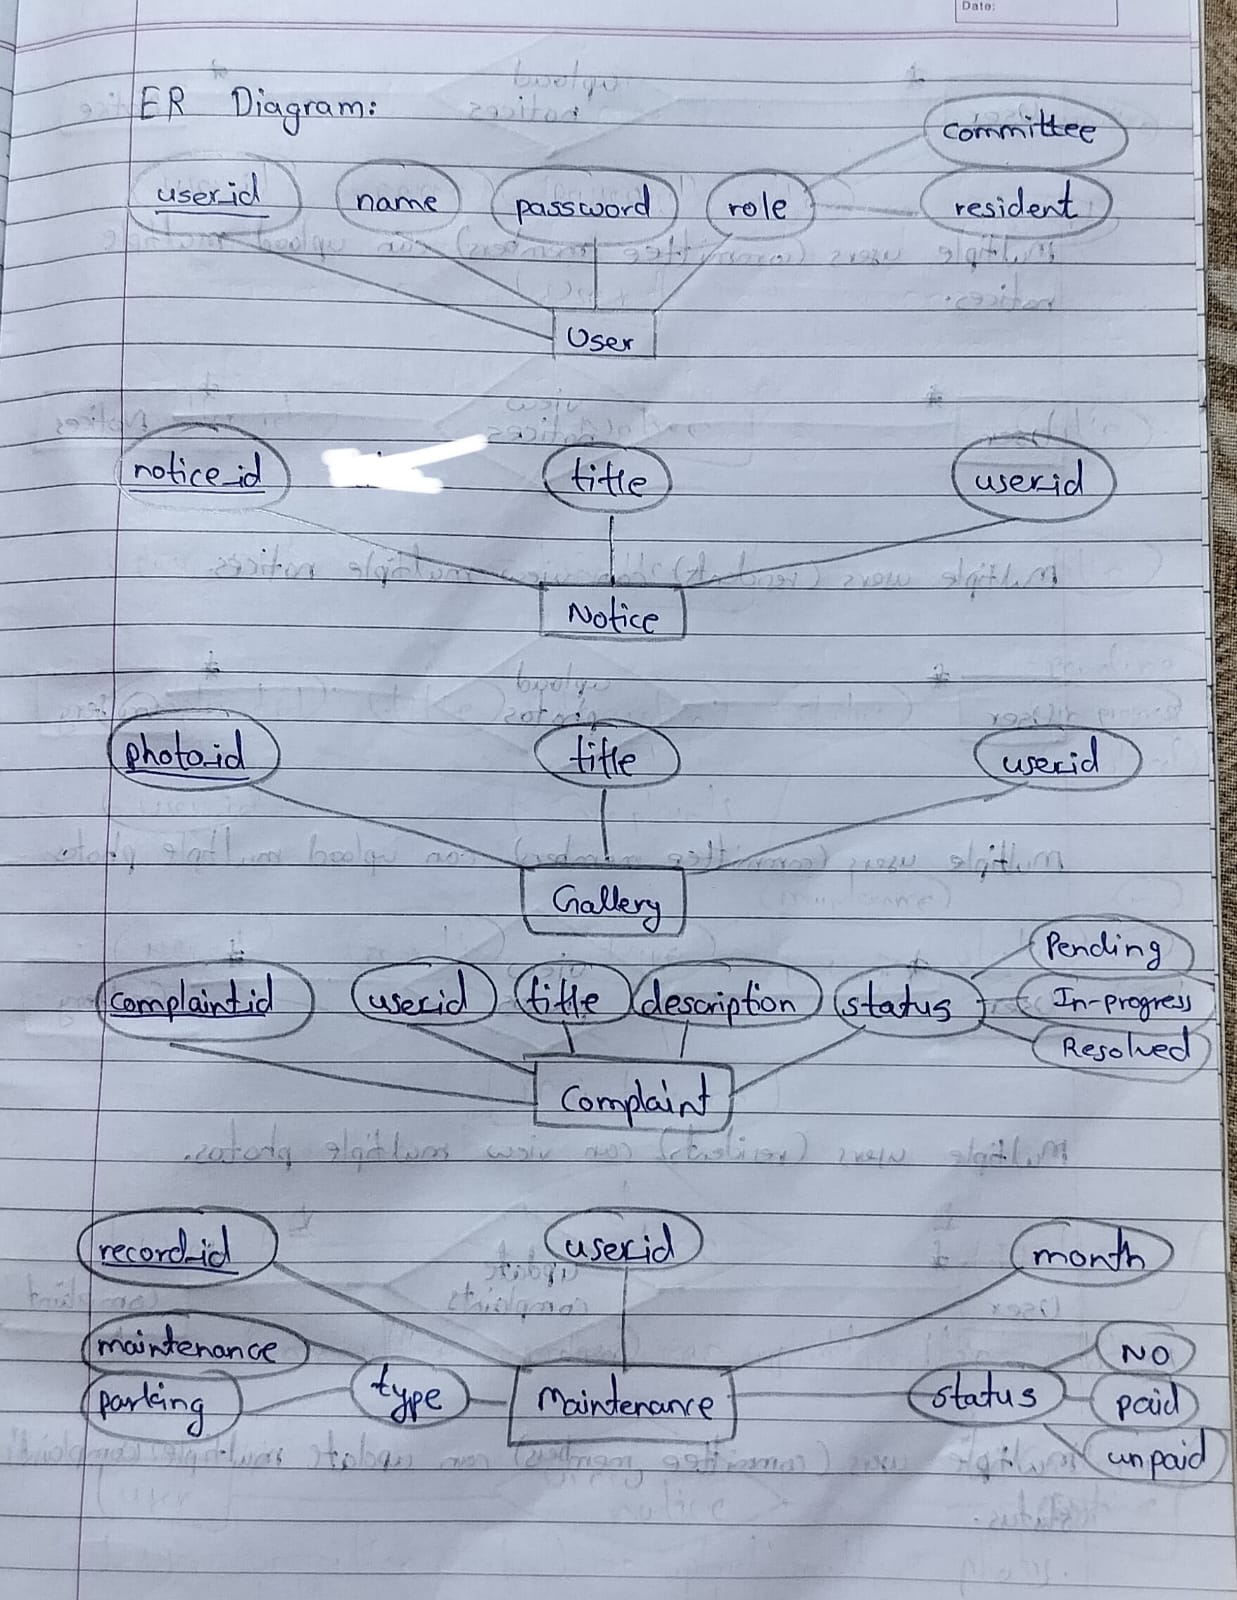 Date:
ER Diagram:
committee
user_id name password role resident
User
notice_id title user_id
Notice
photo_id title user_id
Gallery
Pending
complaint_id user_id title description status In-progress
Resolved
Complaint
record_id user_id month
maintenance NO
parking type Maintenance status paid
unpaid